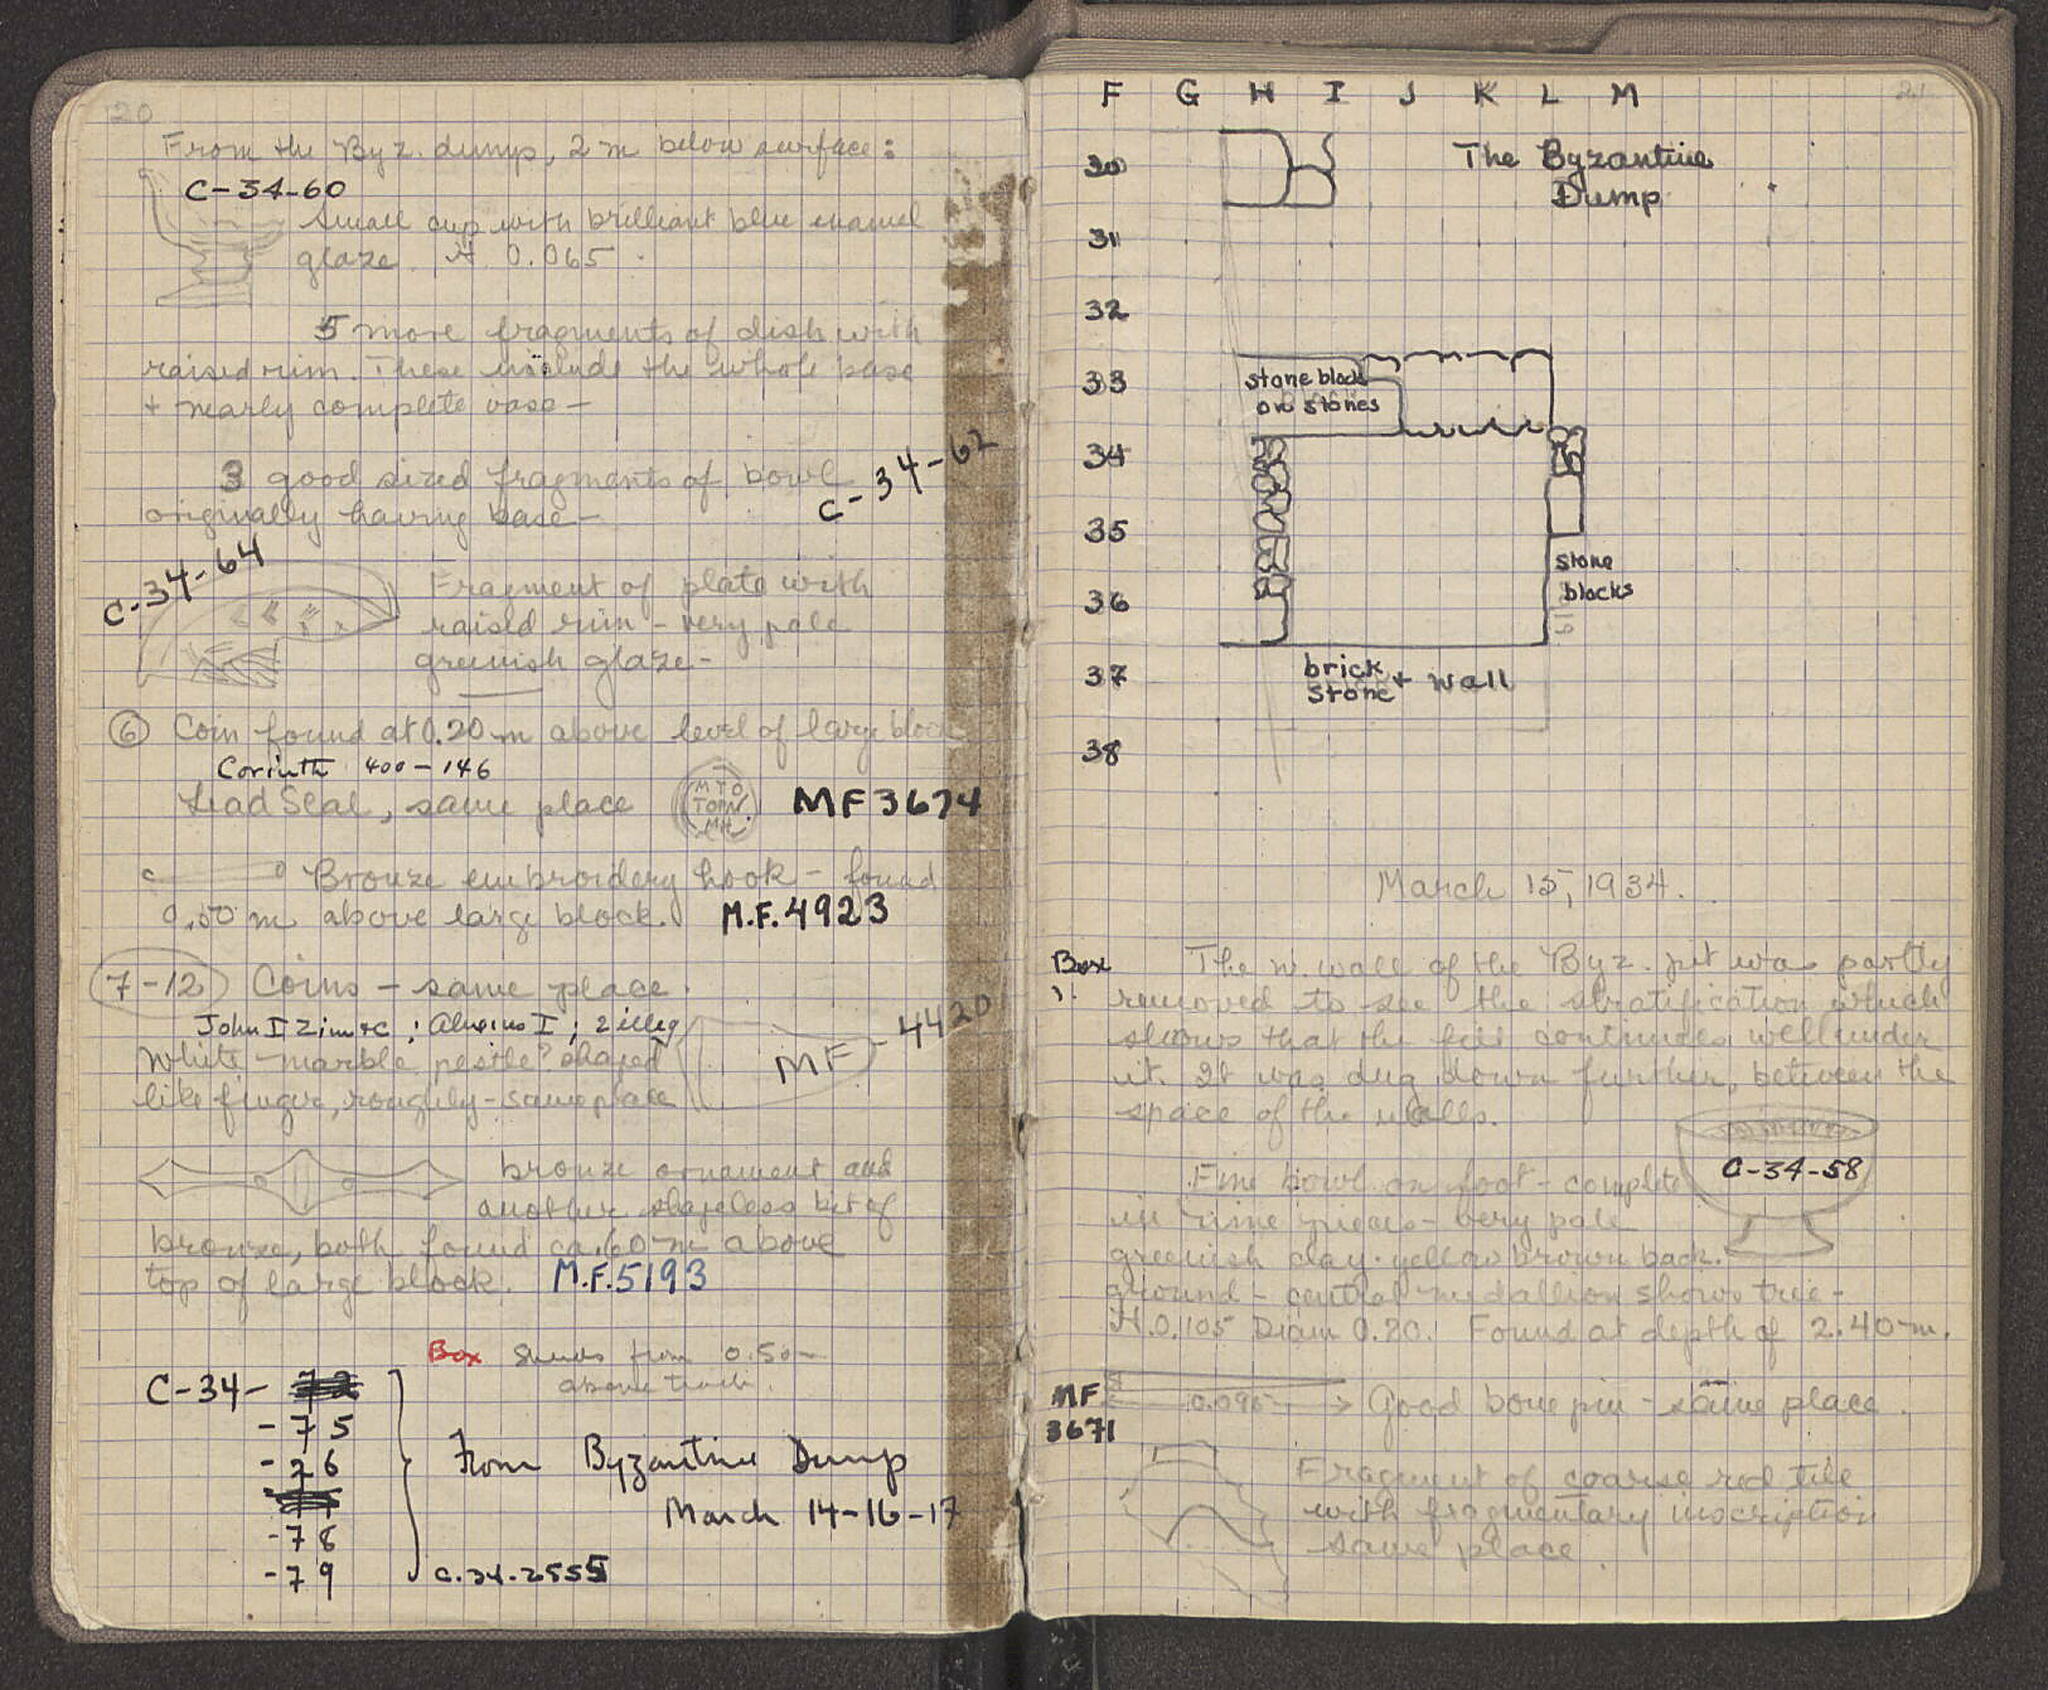 20
From the Byz. dump, 2 m below surface:
C-34-60
Small cup with brilliant blue enamel
glaze. H. 0.065.
5 more fragments of dish with
raised rim. These include the whole base
+ nearly complete vase—
3 good sized fragments of bowl
originally having base—
C-34-62
C-34-64
Fragment of plate with
raised rim - very pale
greenish glaze-
6 Coin found at 0.20 m above level of large block
Corinth 400-146
Lead Seal, same place
MF 3674
Bronze embroidery hook - found
0.50 m above large block. M.F. 4923
7-12 Coins - same place.
John I Zimisc; Alexius I; 2 illeg
White marble pestle? shaped
like finger, roughly - same place
MF-4420
bronze ornament and
another shapeless bit of
bronze, both found ca .60 m above
top of large block. M.F. 5193
Box Sherds from 0.50
above
C-34-
-75
-76
-78
-79
From Byzantine Dump
March 14-16-17
C.34.2555
21
F G H I J K L M
30
31
32
33
34
35
36
37
38
The Byzantine
Dump
stone block
on stones
stone
blocks
brick + wall
stone
March 15, 1934.
Box
The w. wall of the Byz. pit was partly
removed to see the stratification which
shows that the fill continues well under
it. It was dug down further, between the
space of the walls.
C-34-58
Fine bowl on foot - complete
in nine pieces - very pale
greenish clay. yellow brown back-
ground - central medallion shows tree -
H. 0.105 Diam 0.20. Found at depth of 2.40 m.
MF
3671
0.095
Good bone pin - same place.
Fragment of coarse red tile
with fragmentary inscription
same place.